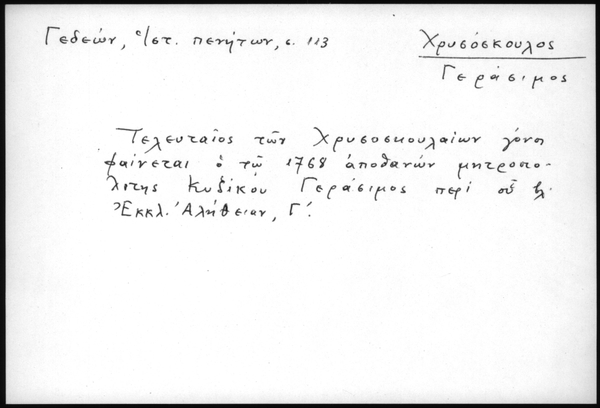 Γεδεών, Ἱστ. πενήτων, σ. 113
Χρυσόσκουλος
Γεράσιμος
Τελευταῖος τῶν Χρυσοσκουλαίων γόνος
φαίνεται ὁ τῷ 1768 ἀποθανών μητροπο-
λίτης Κυζίκου Γεράσιμος περί οὗ βλ.
Ἐκκλ. Ἀλήθειαν, Γ΄.